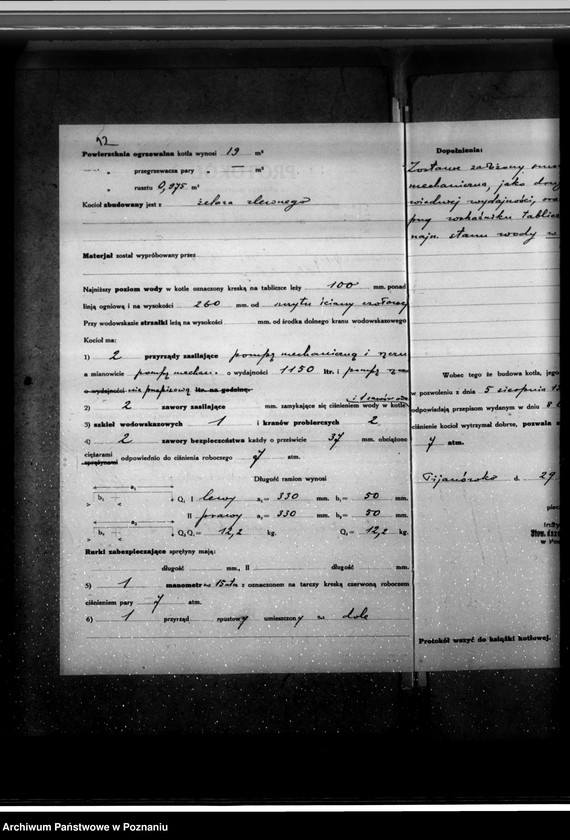 12
Powierzchnia ogrzewalna kotła wynosi 19 m²
„ przegrzewacza pary „ — m²
„ rusztu 0,975 m²
Kocioł zbudowany jest z żelaza zlewnego
Materjał został wypróbowany przez
Najniższy poziom wody w kotle oznaczony kreską na tabliczce leży 100 mm. ponad
linją ogniową i na wysokości 260 mm. od szczytu ściany czołowej
Przy wodowskazie strzałki leżą na wysokości mm. od środka dolnego kranu wodowskazowego
Kocioł ma:
1) 2 przyrządy zasilające pompę mechaniczną i
a mianowicie pompę mechan. o wydajności 1150 ltr. i pompę
o wydajności nie przepisową ltr. na godzinę.
2) 2 zawory zasilające mm. zamykające się ciśnieniem wody w kotle
3) szkieł wodowskazowych 1 i kranów probierczych 2
4) 2 zawory bezpieczeństwa każdy o prześwicie 37 mm. obciążone
ciężarami
sprężynami odpowiednio do ciśnienia roboczego 7 atm.
Długość ramion wynosi
a₁ b₁ Q₁ I lewy a₁= 330 mm. b₁= 50 mm.
II prawy a₁= 330 mm. b₁= 50 mm.
a₁ b₁ Q₁Q₁= 12,2 kg. Q₁= 12,2 kg.
Rurki zabezpieczające sprężyny mają:
długość mm., II długość mm.
5) 1 manometr 15 atm z oznaczonem na tarczy kreską czerwoną roboczem
ciśnieniem pary 7 atm.
6) 1 przyrząd spustowy umieszczony w dole
Dopełnienia:
Zostanie założony
mechaniczna, jako
wydajności,
przy wodowskaźniku
najn. stanu wody w
Wobec tego że budowa kotła, jego
w pozwoleniu z dnia 5 sierpnia
odpowiadają przepisom wydanym w dniu 8
ciśnienie kocioł wytrzymał dobrze, pozwala
7 atm.
d. 29
piec
Inży
Stow. doz
w Poz
Protokół wszyć do książki kotłowej.
Archiwum Państwowe w Poznaniu